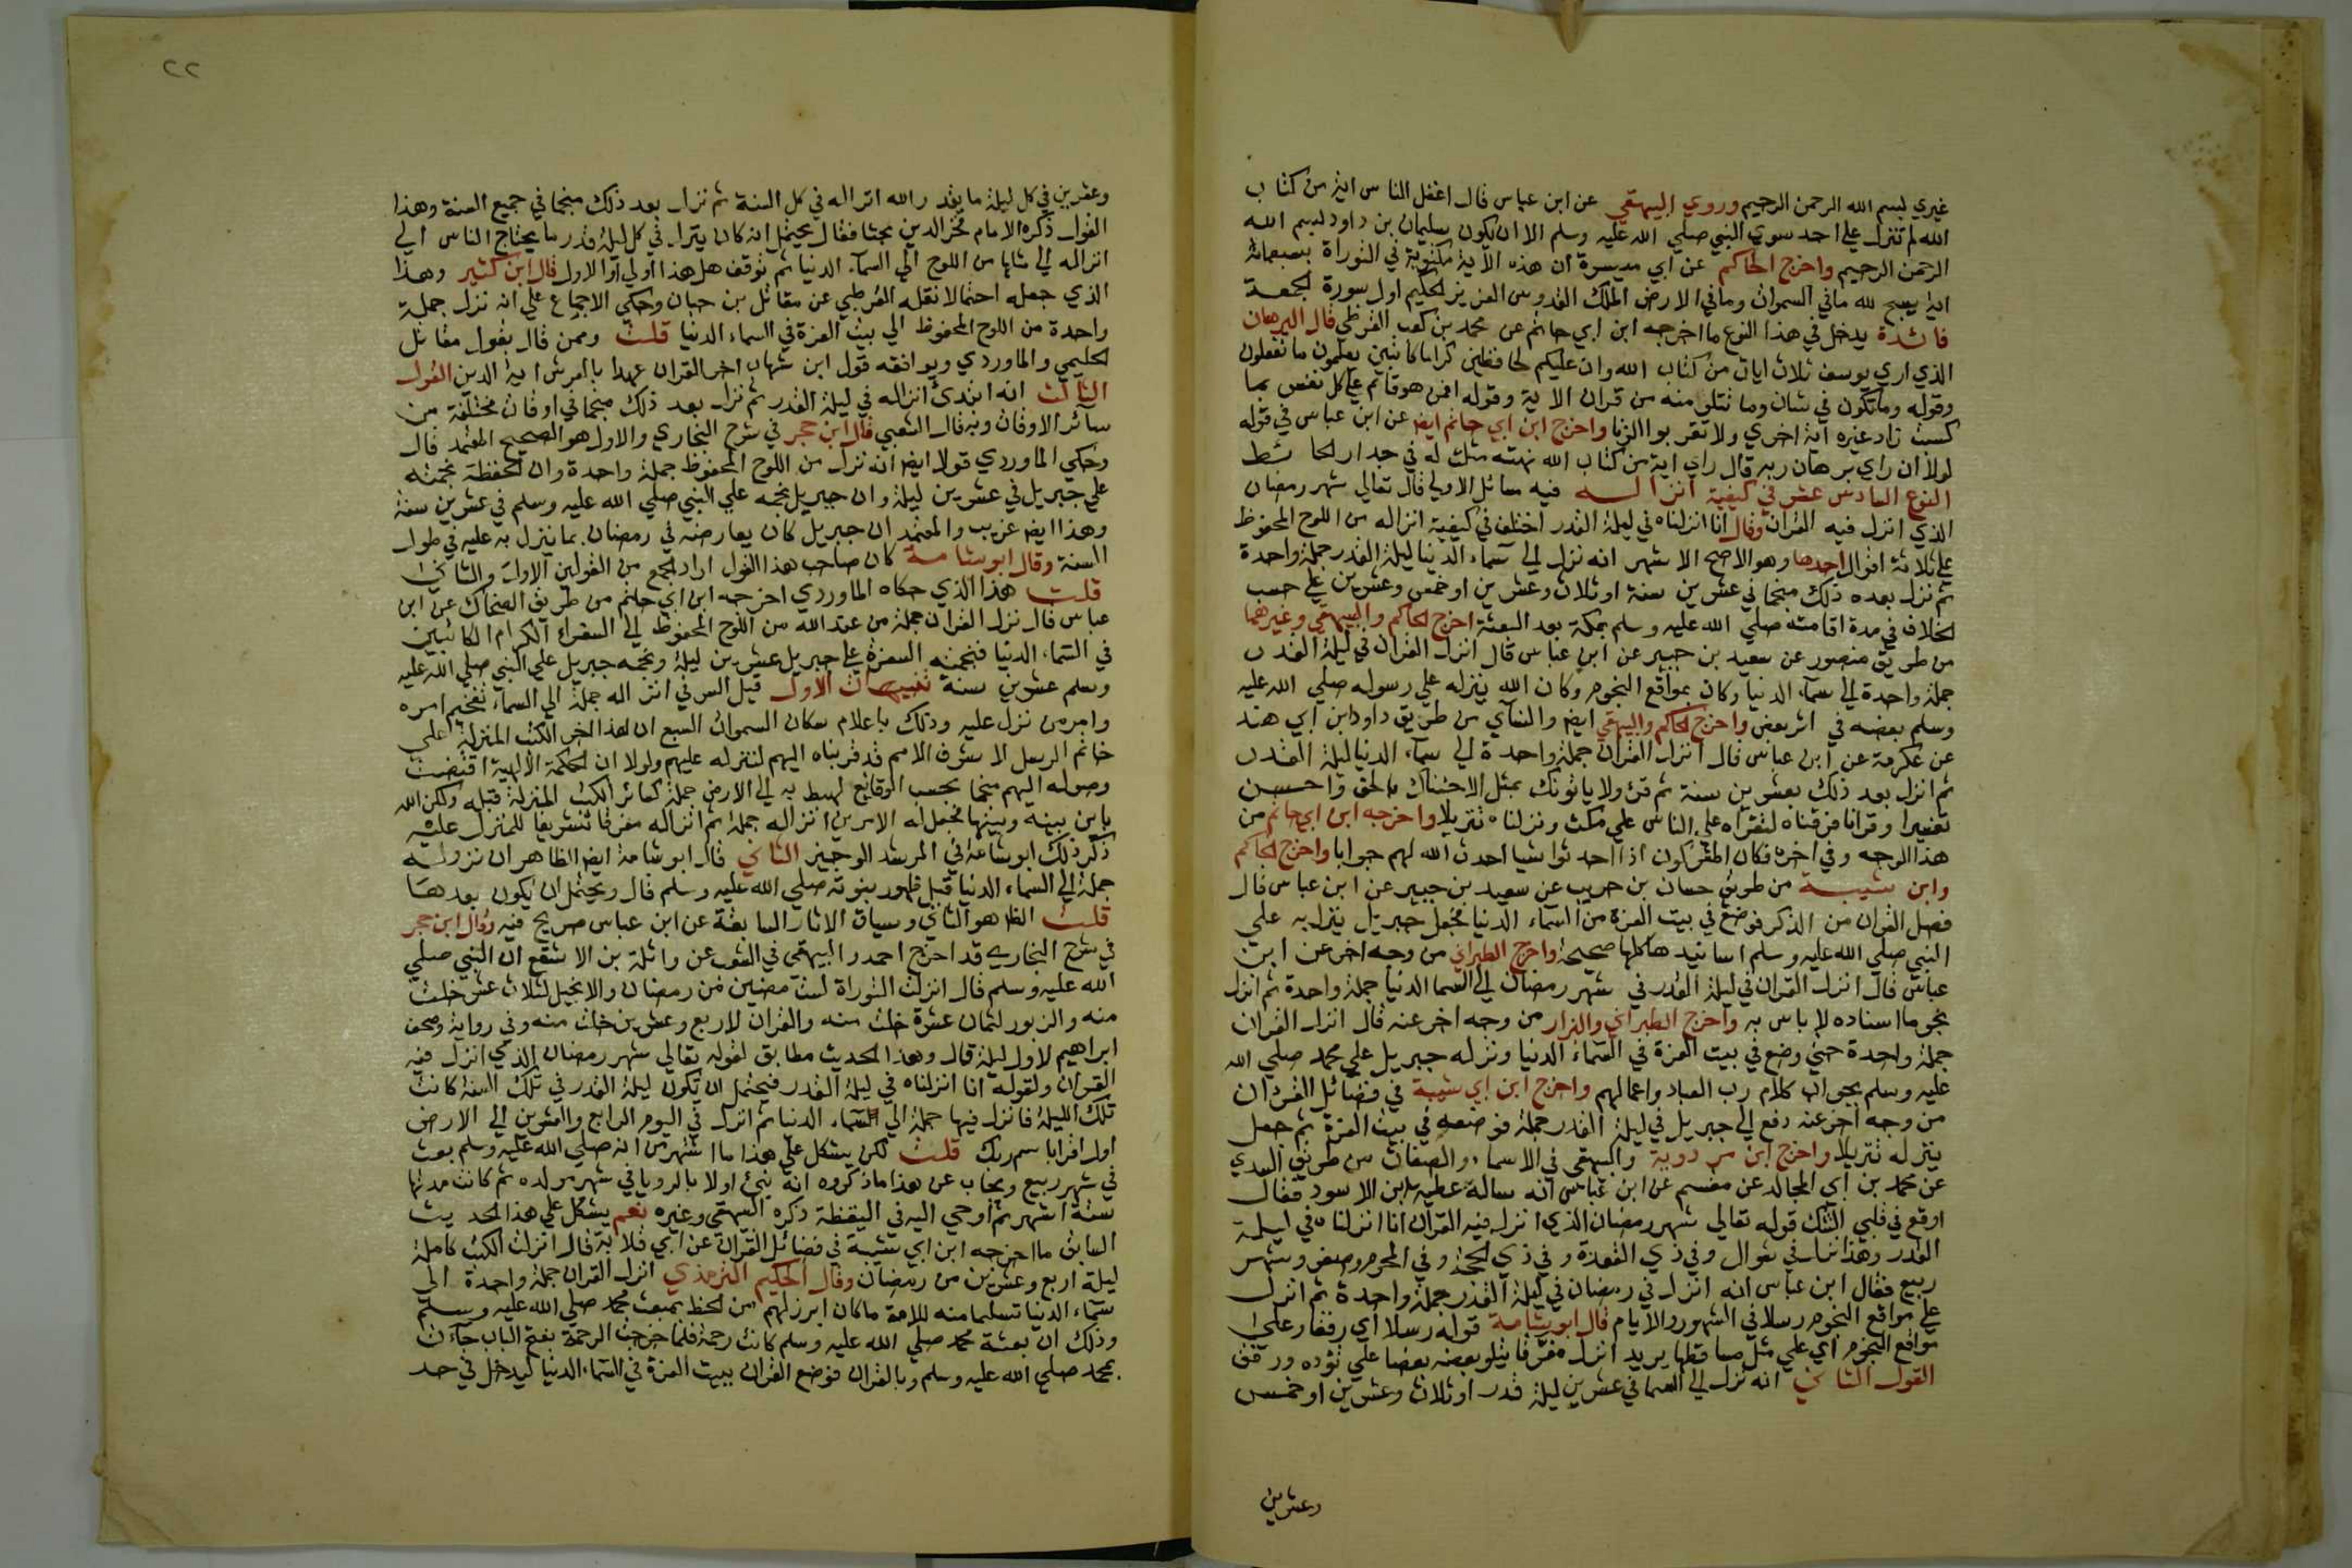 غيري بسم الله الرحمن الرحيم وروي البيهقي عن ابن عباس قال اغفل الناس اية من كتاب
الله لم تنزل علي احد سوي النبي صلي الله عليه وسلم الا ان يكون سليمان بن داود بسم الله
الرحمن الرحيم واخرج الحاكم عن ابي ميسرة ان هذه الاية مكتوبة في التوراة بسبعمائة
اية يسبح لله ما في السموات وما في الارض الملك القدوس العزيز الحكيم اول سورة الجمعة
فائدة يدخل في هذا النوع ما اخرجه ابن ابي حاتم عن محمد بن كعب القرظي قال البرهان
الذي اري يوسف ثلاث ايات من كتاب الله وان عليكم لحافظين كراما كاتبين يعلمون ما تفعلون
وقوله وما تكون في شان وما تتلو منه من قران الاية وقوله افمن هو قائم علي كل نفس بما
كسبت زاد غيره اية اخري ولا تقربوا الزنا واخرج ابن ابي حاتم ايضا عن ابن عباس في قوله
لولا ان راي برهان ربه قال راي اية من كتاب الله نهته مثلت له في جدار الحائط
النوع السادس عشر في كيفية انزاله فيه مسائل الاولي قال تعالي شهر رمضان
الذي انزل فيه القران وقال انا انزلناه في ليلة القدر اختلف في كيفية انزاله من اللوح المحفوظ
علي ثلاثة اقوال احدها وهو الاصح الاشهر انه نزل الي سماء الدنيا ليلة القدر جملة واحدة
ثم نزل بعده ذلك منجما في عشرين سنة او ثلاث وعشرين او خمس وعشرين علي حسب
الخلاف في مدة اقامته صلي الله عليه وسلم بمكة بعد البعثة اخرج الحاكم والبيهقي وغيرهما
من طريق منصور عن سعيد بن جبير عن ابن عباس قال انزل القران في ليلة القدر
جملة واحدة الي سماء الدنيا وكان بمواقع النجوم وكان الله ينزله علي رسوله صلي الله عليه
وسلم بعضه في اثر بعض واخرج الحاكم والبيهقي ايضا والنسائي من طريق داود ابن ابي هند
عن عكرمة عن ابن عباس قال انزل القران جملة واحدة الي سماء الدنيا ليلة القدر
ثم انزل بعد ذلك بعشرين سنة ثم قرئ ولا ياتونك بمثل الا جئناك بالحق واحسن
تفسيرا وقرانا فرقناه لتقراه علي الناس علي مكث ونزلناه تنزيلا واخرجه ابن ابي حاتم من
هذا الوجه وفي اخره فكان المشركون اذا احدثوا شيا احدث الله لهم جوابا واخرج الحاكم
وابن شيبة من طريق حسان بن حريب عن سعيد بن جبير عن ابن عباس قال
فصل القران من الذكر فوضع في بيت العزة من السماء الدنيا فجعل جبريل ينزل به علي
النبي صلي الله عليه وسلم اسانيدها كلها صحيحة واخرج الطبراني من وجه اخر عن ابن
عباس قال انزل القران في ليلة القدر في شهر رمضان الي السما الدنيا جملة واحدة ثم انزل
نجوما اسناده لا باس به واخرج الطبراني والبزار من وجه اخر عنه قال انزل القران
جملة واحدة حتي وضع في بيت العزة في السماء الدنيا ونزله جبريل علي محمد صلي الله
عليه وسلم بجواب كلام رب العباد واعمالهم واخرج ابن ابي شيبة في فضائل القران
من وجه اخر عنه دفع الي جبريل في ليلة القدر جملة فوضعه في بيت العزة ثم جعل
ينزله تنزيلا واخرج ابن مردوية والبيهقي في الاسماء والصفات من طريق السدي
عن محمد بن ابي المجالد عن مقسم عن ابن عباس انه ساله عطية بن الاسود فقال
اوقع في قلبي الشك قوله تعالي شهر رمضان الذي انزل فيه القران انا انزلناه في ليلة
القدر وهذا نزل في شوال وفي ذي القعدة وفي ذي الحجة وفي المحرم وصفر وشهر
ربيع فقال ابن عباس انه انزل في رمضان في ليلة القدر جملة واحدة ثم انزل
علي مواقع النجوم رسلا في الشهور والايام قال ابو شامة قوله رسلا اي رفقا وعلي
مواقع النجوم اي علي مثل مساقطها يريد انزل مفرقا يتلو بعضه بعضا علي تؤده ورفق
القول الثاني انه نزل الي السما في عشرين ليلة قدر او ثلاث وعشرين او خمس
وعشرين
٢٢
وعشرين في كل ليلة ما يقدر الله انزاله في كل السنة ثم نزل بعد ذلك منجما في جميع السنة وهذا
القول ذكره الامام فخر الدين بحثا فقال يحتمل انه كان ينزل في كل ليلة قدر ما يحتاج الناس الي
انزاله الي مثلها من اللوح الي السماء الدنيا ثم توقف هل هذا اولي او الاول قال ابن كثير وهذا
الذي جعله احتمالا نقله القرطبي عن مقاتل بن حبان وحكي الاجماع علي انه نزل جملة
واحدة من اللوح المحفوظ الي بيت العزة في السماء الدنيا قلت وممن قال بقول مقاتل
الحليمي والماوردي ويوافقه قول ابن شهاب اخر القران عهدا بالعرش اية الدين القول
الثالث انه ابتدئ انزاله في ليلة القدر ثم نزل بعد ذلك منجما في اوقات مختلفة من
سائر الاوقات وبه قال الشعبي قال ابن حجر في شرح البخاري والاول هو الصحيح المعتمد قال
وحكي الماوردي قولا ايضا انه نزل من اللوح المحفوظ جملة واحدة وان الحفظة نجمته
علي جبريل في عشرين ليلة وان جبريل نجمه علي النبي صلي الله عليه وسلم في عشرين سنة
وهذا ايضا غريب والمعتمد ان جبريل كان يعارضه في رمضان بما ينزل به عليه في طول
السنة وقال ابو شامة كان صاحب هذا القول اراد الجمع بين القولين الاول والثاني
قلت هذا الذي حكاه الماوردي اخرجه ابن ابي حاتم من طريق الضحاك عن ابن
عباس قال نزل القران جملة من عند الله من اللوح المحفوظ الي السفراء الكرام الكاتبين
في السماء الدنيا فنجمته السفرة علي جبريل عشرين ليلة ونجمه جبريل علي النبي صلي الله عليه
وسلم عشرين سنة تنبيهات الاول قيل السر في انزاله جملة الي السماء تفخيم امره
وامر من نزل عليه وذلك باعلام سكان السموات السبع ان هذا اخر الكتب المنزلة علي
خاتم الرسل لاشرف الامم قد قربناه اليهم لننزله عليهم ولولا ان الحكمة الالهية اقتضت
وصوله اليهم منجما بحسب الوقائع لهبط به الي الارض جملة كسائر الكتب المنزلة قبله ولكن الله
باين بينه وبينها فجعل له الامرين انزاله جملة ثم انزاله مفرقا تشريفا للمنزل عليه
ذكر ذلك ابو شامة في المرشد الوجيز الثاني قال ابو شامة ايضا الظاهر ان نزوله
جملة الي السماء الدنيا قبل ظهور نبوته صلي الله عليه وسلم قال ويحتمل ان يكون بعدها
قلت الظاهر هو الثاني وسياق الاثار السابقة عن ابن عباس صريح فيه وقال ابن حجر
في شرح البخاري قد اخرج احمد والبيهقي في الشعب عن واثلة بن الاسقع ان النبي صلي
الله عليه وسلم قال انزلت التوراة لست مضين من رمضان والانجيل لثلاث عشرة خلت
منه والزبور لثمان عشرة خلت منه والقران لاربع وعشرين خلت منه وفي رواية وصحف
ابراهيم لاول ليلة قال وهذا الحديث مطابق لقوله تعالي شهر رمضان الذي انزل فيه
القران ولقوله انا انزلناه في ليلة القدر فيحتمل ان يكون ليلة القدر في تلك السنة كانت
تلك الليلة فانزل فيها جملة الي السماء الدنيا ثم انزل في اليوم الرابع والعشرين الي الارض
اول اقرا باسم ربك قلت لكن يشكل علي هذا ما اشتهر من انه صلي الله عليه وسلم بعث
في شهر ربيع ويجاب عن هذا ما ذكروه انه نبئ اولا بالرويا في شهر مولده ثم كانت مدتها
ستة اشهر ثم اوحي اليه في اليقظة ذكره البيهقي وغيره نعم يشكل علي هذا الحديث
السابق ما اخرجه ابن ابي شيبة في فضائل القران عن ابي قلابة قال انزلت الكتب كاملة
ليلة اربع وعشرين من رمضان وقال الحكيم الترمذي انزل القران جملة واحدة الي
سماء الدنيا تسليما منه للامة ما كان ابرز لهم من الحظ بمبعث محمد صلي الله عليه وسلم
وذلك ان بعثة محمد صلي الله عليه وسلم كانت رحمة فلما خرجت الرحمة بفتح الباب جاءت
بمحمد صلي الله عليه وسلم وبالقران فوضع القران ببيت العزة في السماء الدنيا ليدخل في حد